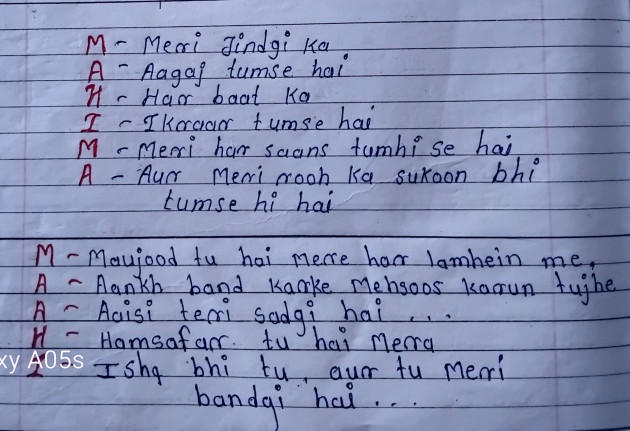 M - Merri Jindgi ka
A - Aagaj tumse hai
H - Harr baat ka
I - Ikraarr tumse hai
M - Merri harr saans tumhi se hai
A - Aur Merri rooh ka sukoon bhi
tumse hi hai
M - Maujood tu hai merre harr lamhein me,
A - Aankh band karke Mehsoos karrun tujhe
A - Aaisi terri sadgi hai ...
H - Hamsafarr tu hai Merra
I - Ishq bhi tu, aurr tu Merri
bandgi hai ...
xy A05s